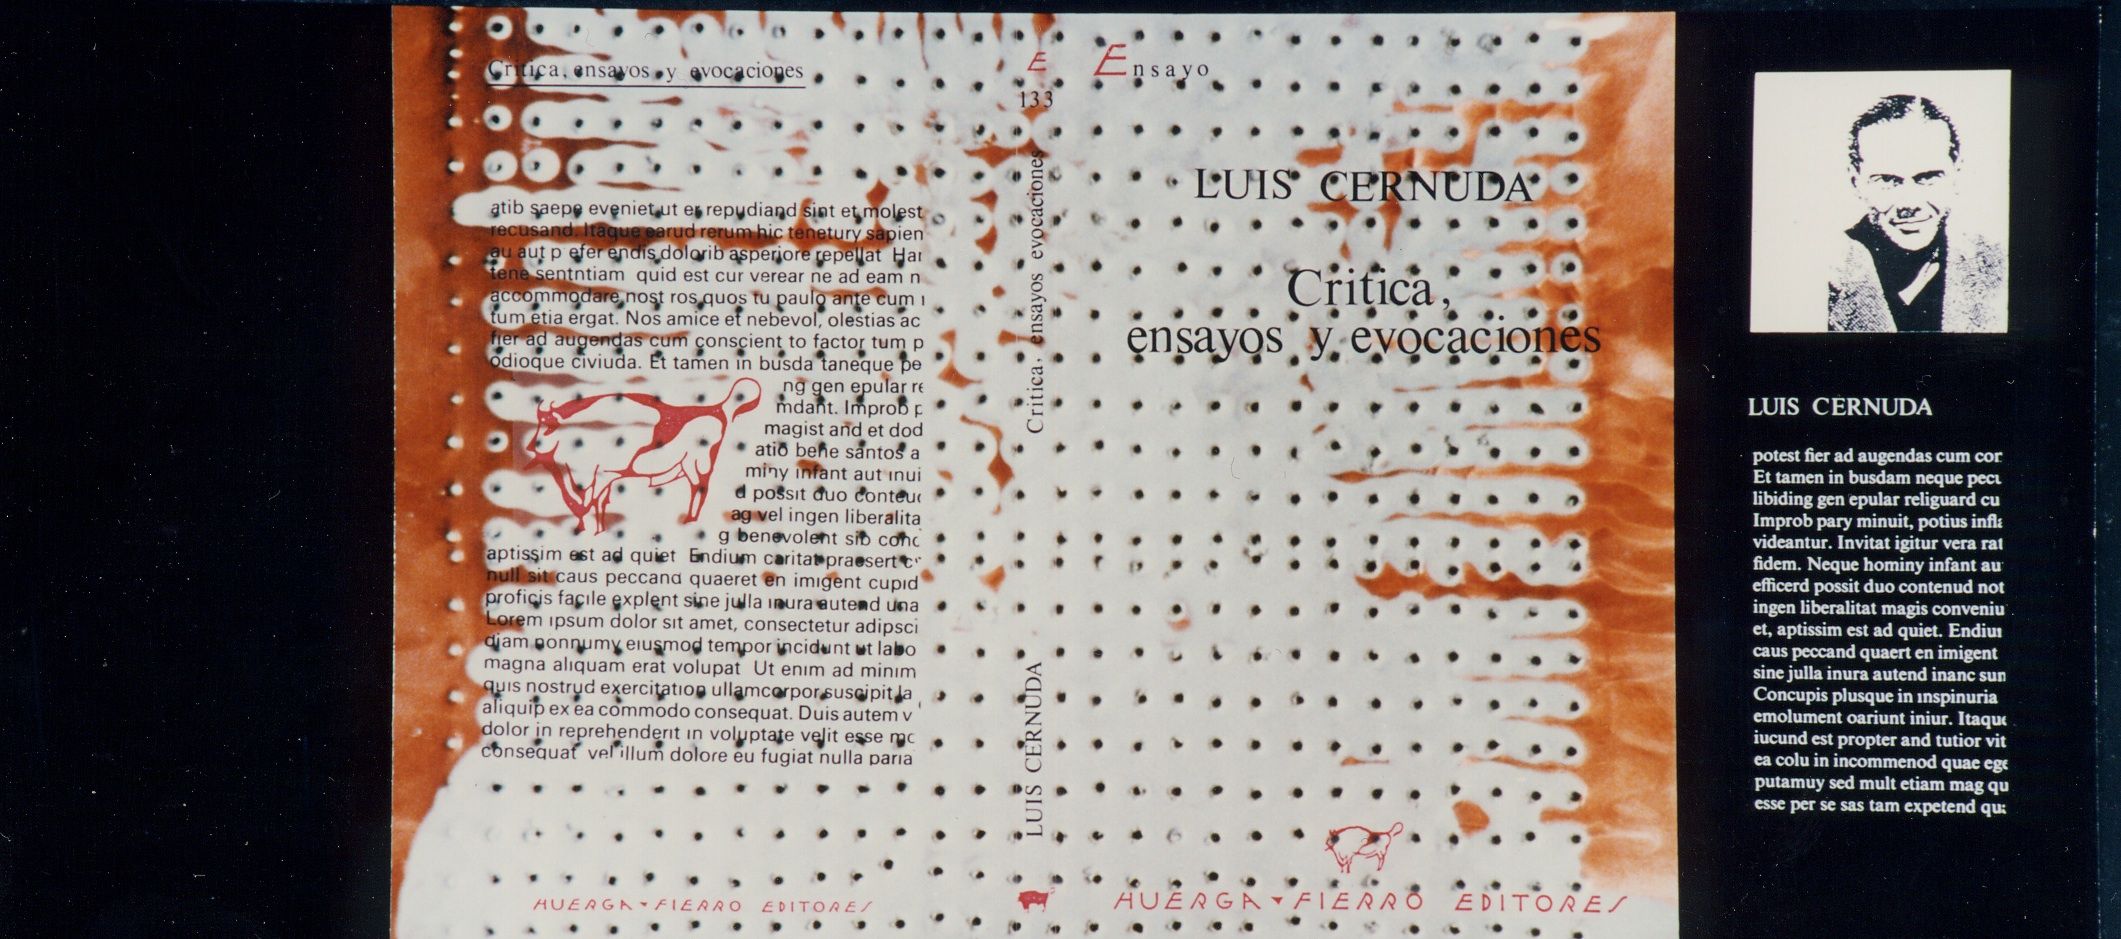 Critica, ensayos y evocaciones
atib saepe eveniet ut er repudiand sint et molest
recusand. Itaque earud rerum hic tenetury sapien
au aut p efer endis dolorib asperiore repellat Har
tene sentntiam quid est cur verear ne ad eam n
accommodare nost ros quos tu paulo ante cum
tum etia ergat. Nos amice et nebevol, olestias ac
fier ad augendas cum conscient to factor tum p
odioque civiuda. Et tamen in busda taneque pe
ng gen epular re
mdant. Improb p
magist and et dod
atio bene santos a
miny infant aut inui
d possit duo conteud
ag vel ingen liberalita
g benevolent sib conc
aptissim est ad quiet Endium caritat praesert c
null sit caus peccand quaeret en imigent cupid
proficis facile explent sine julla inura autend una
Lorem ipsum dolor sit amet, consectetur adipsci
diam nonnumy eiusmod tempor incidunt ut labo
magna aliquam erat volupat Ut enim ad minim
quis nostrud exercitation ullamcorpor suscipit la
aliquip ex ea commodo consequat. Duis autem v
dolor in reprehenderit in voluptate velit esse mo
consequat vel illum dolore eu fugiat nulla paria
HUERGA Y FIERRO EDITORES
E
133
Critica, ensayos evocaciones
LUIS CERNUDA
Ensayo
LUIS CERNUDA
Critica,
ensayos y evocaciones
HUERGA Y FIERRO EDITORES
LUIS CERNUDA
potest fier ad augendas cum cor
Et tamen in busdam neque pecu
libiding gen epular religuard cu
Improb pary minuit, potius infla
videantur. Invitat igitur vera rat
fidem. Neque hominy infant au
efficerd possit duo contenud not
ingen liberalitat magis conveniu
et, aptissim est ad quiet. Endiun
caus peccand quaert en imigent
sine julla inura autend inanc sun
Concupis plusque in inspinuria
emolument oariunt iniur. Itaque
iucund est propter and tutior vit
ea colu in incommenod quae ege
putamuy sed mult etiam mag qu
esse per se sas tam expetend qua